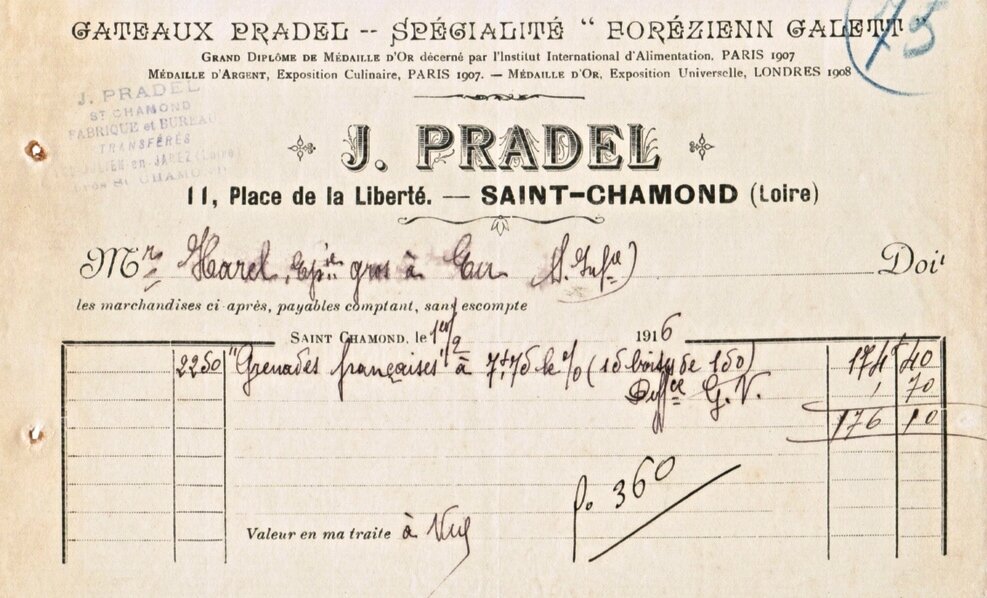 GATEAUX PRADEL -- SPÉCIALITÉ " FORÉZIENN GALETT "
75
GRAND DIPLÔME DE MÉDAILLE D'OR décerné par l'Institut International d'Alimentation, PARIS 1907
MÉDAILLE D'ARGENT, Exposition Culinaire, PARIS 1907. — MÉDAILLE D'OR, Exposition Universelle, LONDRES 1908
J. PRADEL
ST CHAMOND
FABRIQUE et BUREAU
TRANSFÉRÉS
EN-JAREZ (Loire)
près St CHAMOND
J. PRADEL
11, Place de la Liberté. — SAINT-CHAMOND (Loire)
Mrs Harel, Epie gros à Eu (S. Infre) Doit
les marchandises ci-après, payables comptant, sans escompte
SAINT CHAMOND, le 1er/9 1916
2250 "Grenades françaises" à 7f,75 le % (15 boites de 150) 174f 40
G. V. 1, 70
176 10
fo 360
Valeur en ma traite à Vue